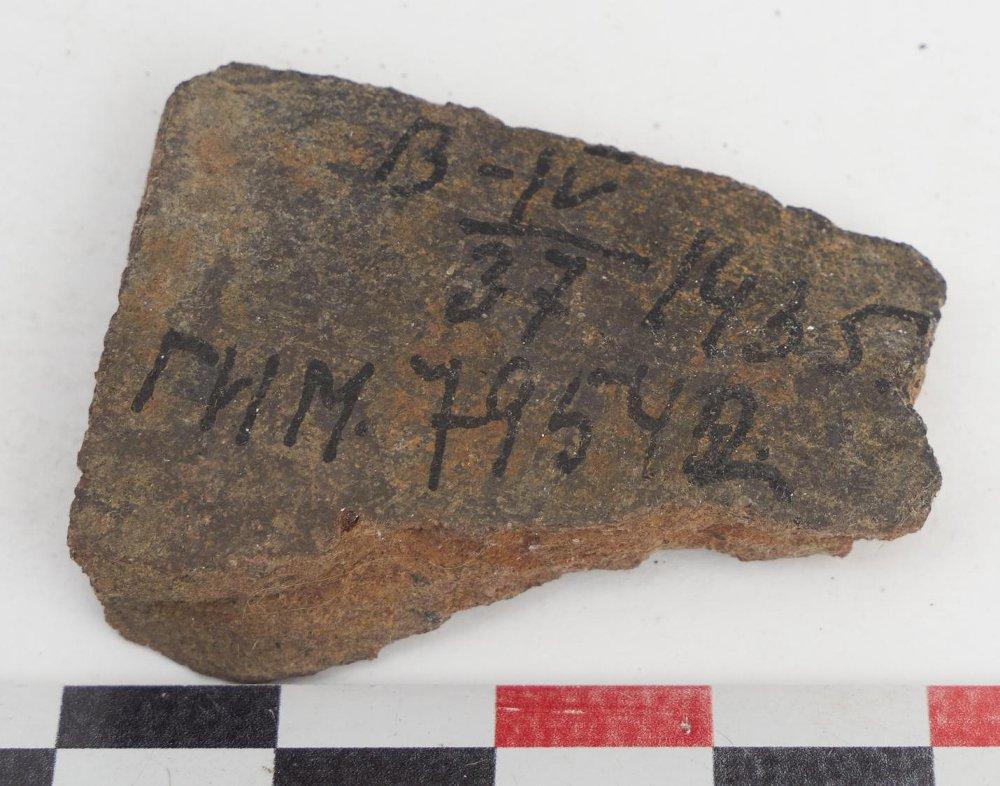 В-IV
37 1435.
ГИМ. 79542